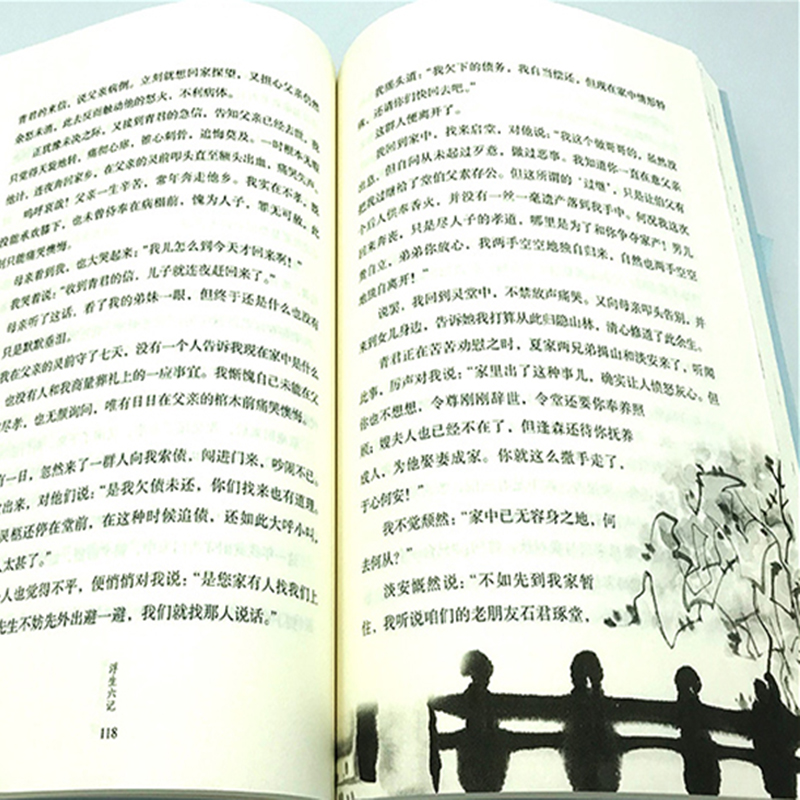 青君的来信，说父亲病倒。立刻就想回家探望，又担心父亲仍然
余怒未消，此去反而触动他的怒火，不利病体。
正犹豫未决之际，又接到青君的急信，告知父亲已经去世。我
只觉得天旋地转，痛彻心扉，锥心刺骨，追悔莫及。一时根本无暇
他计，连夜奔回家乡，在父亲的灵前叩头直至额头出血，痛哭失声。
呜呼哀哉！父亲一生辛苦，常年奔走他乡。我实在不孝，既
没能承欢膝下，也未曾侍奉在病榻前，愧为人子，罪无可赦，此
刻只能痛哭懊悔。
母亲看到我，也大哭起来：“我儿怎么到今天才回来啊！”
我哭着说：“收到青君的信，儿子就连夜赶回来了。”
母亲听了这话，看了我的弟妹一眼，但终于还是什么也没有
只是默默垂泪。
我在父亲的灵前守了七天，没有一个人告诉我现在家中是什么
，也没有人和我商量葬礼上的一应事宜。我惭愧自己未能在父
尽孝，也无颜询问，唯有日日在父亲的棺木前痛哭懊悔。
有一日，忽然来了一群人向我索债，闯进门来，吵闹不已。
出来，对他们说：“是我欠债未还，你们找来也有道理。
灵柩还停在堂前，在这种时候追债，还如此大呼小叫，
太甚了。”
人也觉得不平，便悄悄对我说：“是您家有人找我们上
先生不妨先外出避一避，我们就找那人说话。”
浮生六记
118
我摇头道：“我欠下的债务，我自当偿还，但现在家中情形特
殊，还请你们找回去吧。”
这群人便离开了。
我回到家中，找来启堂，对他说：“我这个做哥哥的，虽然没
出息，但自问从未起过歹意，做过恶事。我知道你一直在意父亲
把我过继给了堂伯父素存公。但这所谓的‘过继’，只是让伯父有
个后人供奉香火，并没有一丝一毫遗产落到我手中。何况我这次
回来奔丧，只是尽人子的孝道，哪里是为了和你争夺家产！男儿
贵自立，弟弟你放心，我两手空空地独自归来，自然也两手空空
地独自离开！”
说罢，我回到灵堂中，不禁放声痛哭。又向母亲叩头告别，并
来到女儿身边，告诉她我打算从此归隐山林，清心修道了此余生。
青君正在苦苦劝慰之时，夏家两兄弟揖山和淡安来了，听闻
此事，厉声对我说：“家里出了这种事儿，确实让人愤怒灰心。但
你也不想想，令尊刚刚辞世，令堂还要你奉养照
顾；嫂夫人也已经不在了，但逢森还待你抚养
成人，为他娶妻成家。你就这么撒手走了，
于心何安！”
我不觉颓然：“家中已无容身之地，何
去何从！”
淡安慨然说：“不如先到我家暂
住，我听说咱们的老朋友石君琢堂，